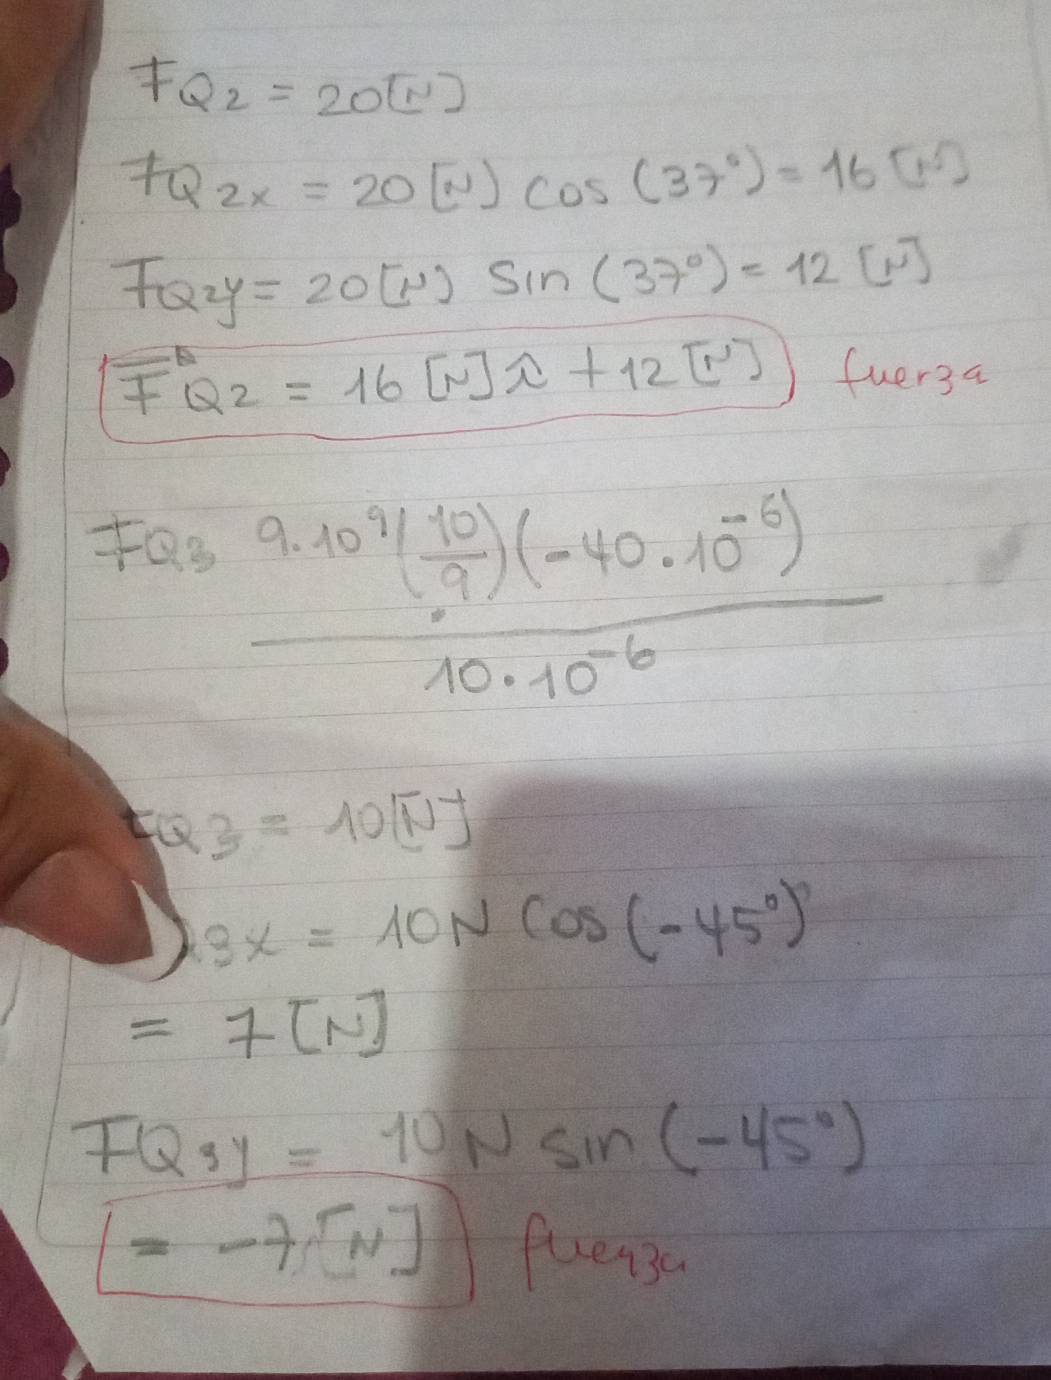 FQ2 = 20[N]
FQ2x = 20[N] cos (37°) = 16 [N]
FQ2y = 20[N] Sin (37°) = 12 [N]
F⃗Q2 = 16 [N] î + 12 [N] fuerza
FQ3 9.10⁹(10/9)(-40.10⁻⁶)
10.10⁻⁶
FQ3 = 10[N]
3x = 10N Cos (-45°)
= 7[N]
FQ3y = 10N sin (-45°)
= -7[N] fuerza